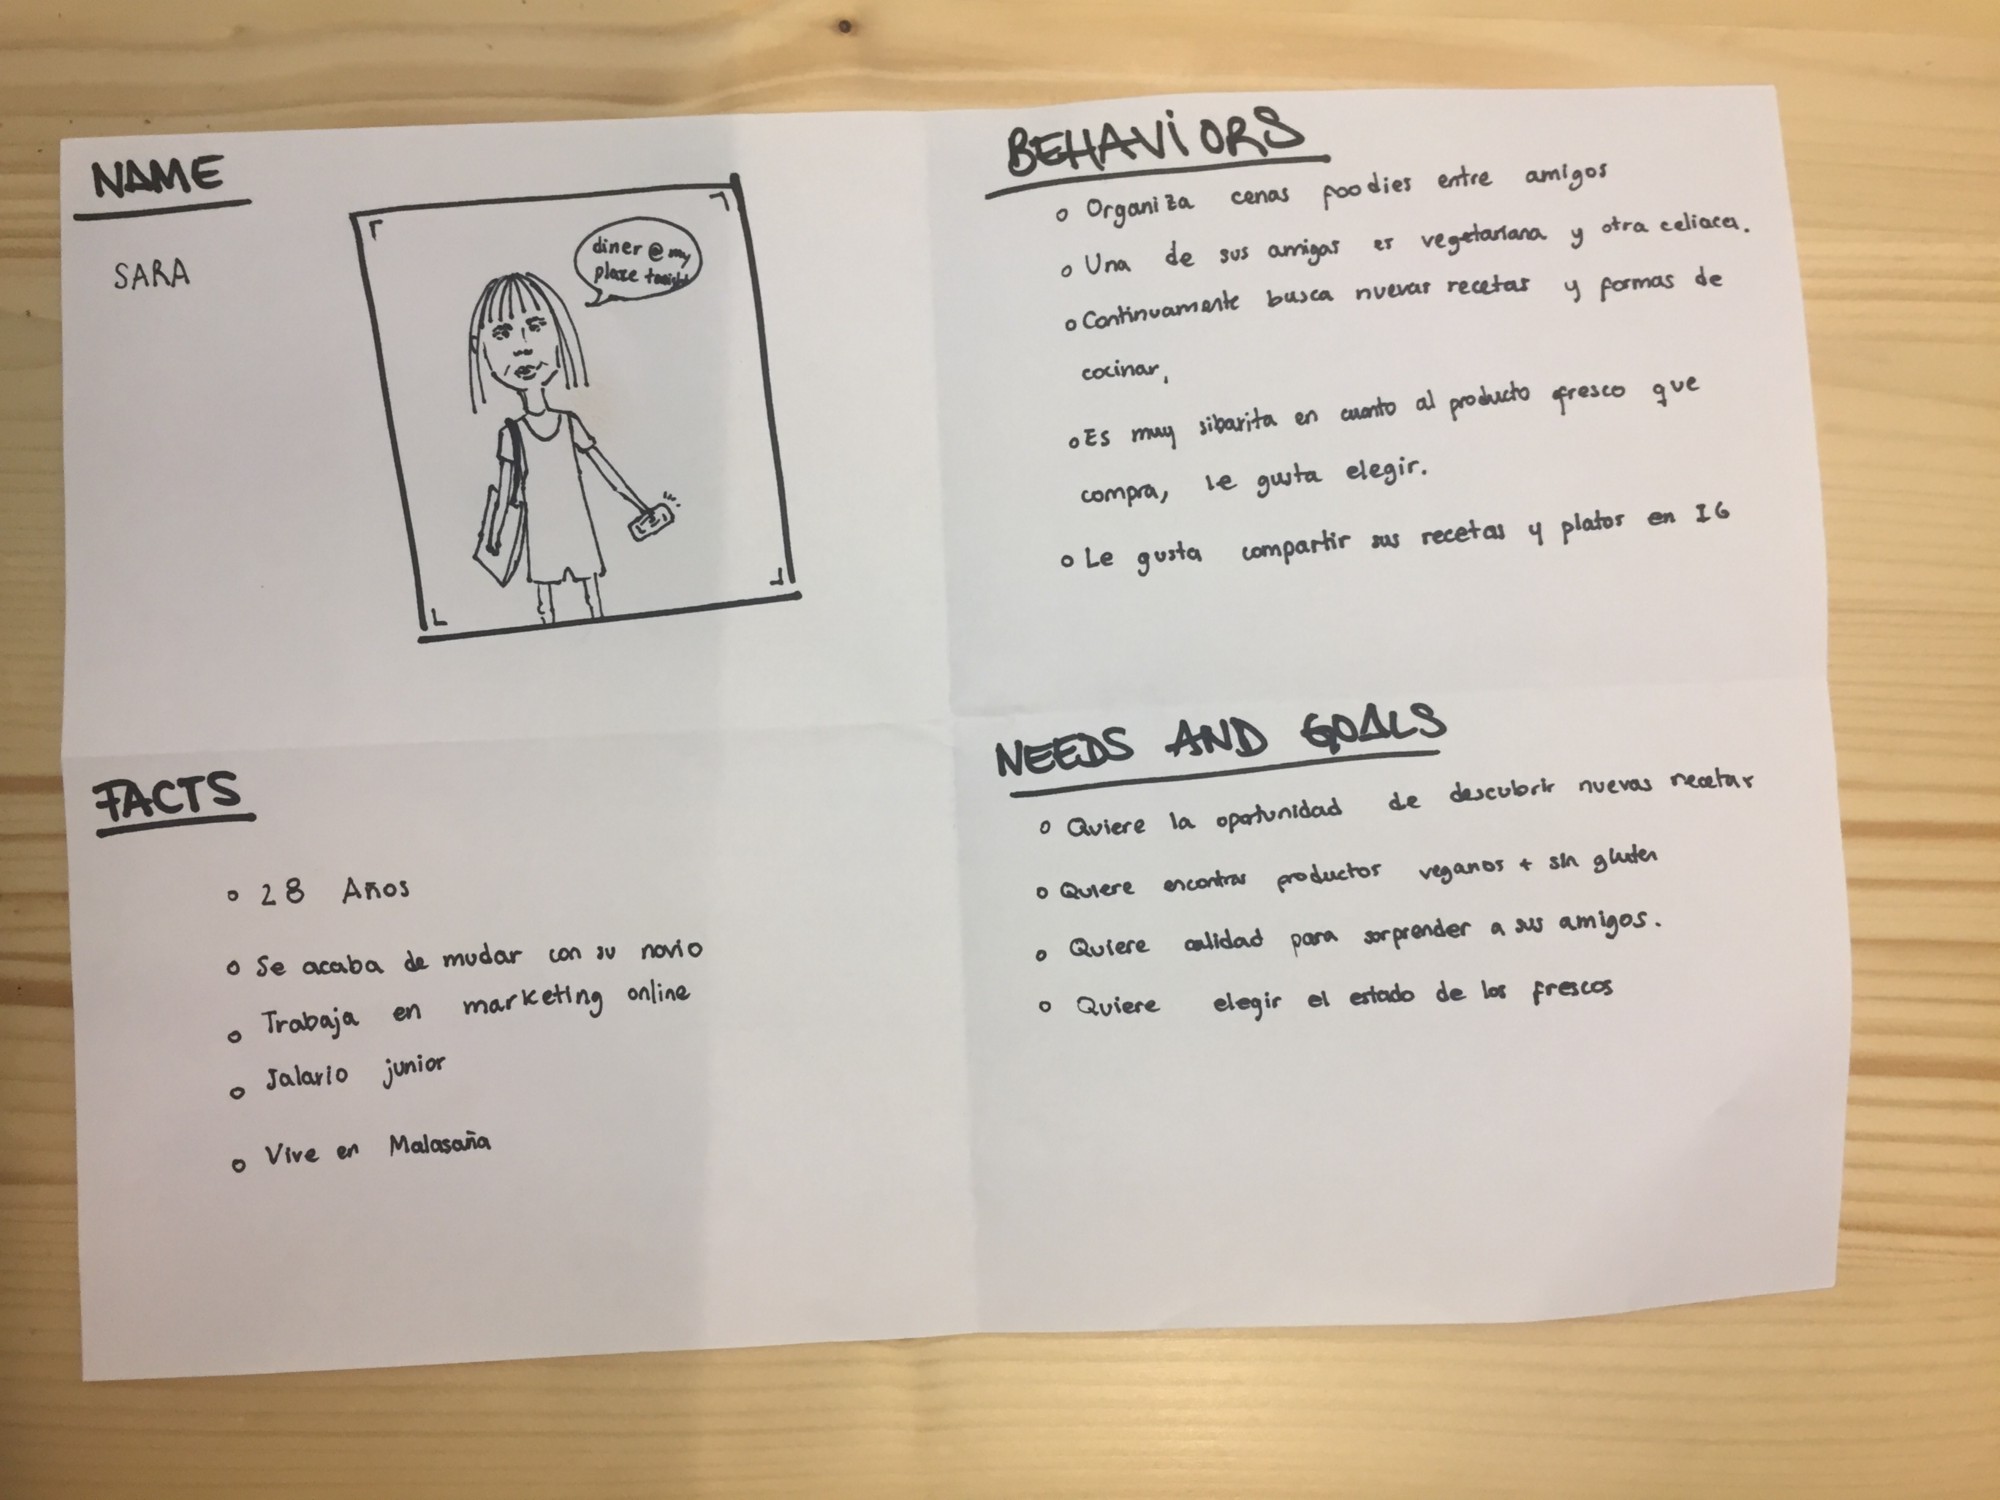 NAME
SARA
diner @ my
place tonight
BEHAVIORS
Organiza cenas foodies entre amigos
Una de sus amigas es vegetariana y otra celiaca.
Continuamente busca nuevas recetas y formas de
cocinar,
Es muy sibarita en cuanto al producto fresco que
compra, le gusta elegir.
Le gusta compartir sus recetas y platos en IG
FACTS
28 Años
Se acaba de mudar con su novio
Trabaja en marketing online
Salario junior
Vive en Malasaña
NEEDS AND GOALS
Quiere la oportunidad de descubrir nuevas recetas
Quiere encontrar productos veganos + sin gluten
Quiere calidad para sorprender a sus amigos.
Quiere elegir el estado de los frescos